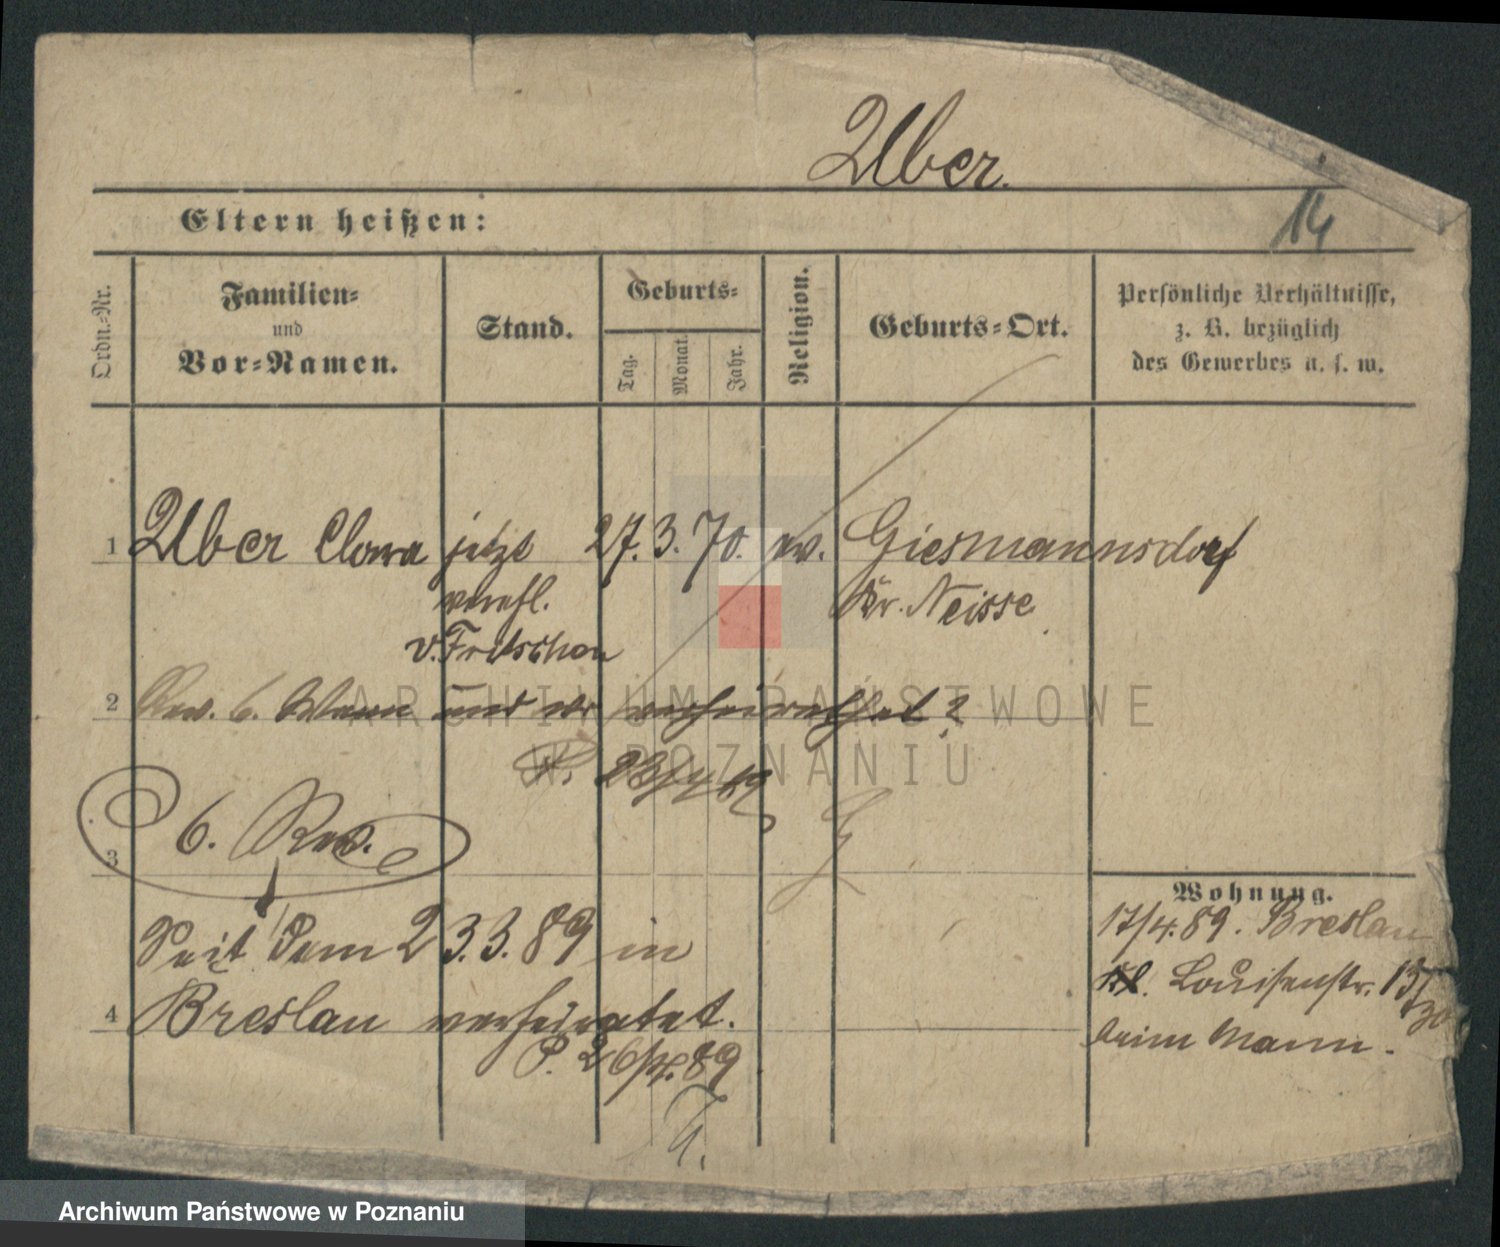 Uber.
14
Eltern heißen:
Ordn.-Nr.
Familien-
und
Vor-Namen.
Stand.
Geburts-
Tag.
Monat.
Jahr.
Religion.
Geburts-Ort.
Persönliche Verhältnisse,
z. B. bezüglich
des Gewerbes u. s. w.
1 Uber Clara jetzt 27. 3. 70. ev. Giesmannsdorf
verehl. Kr. Neisse
v. Fritschen
2 Rev. 6. Wann und wo verheirathet?
P.
6. Rev.
3
Wohnung.
17/4. 89. Breslau
Seit dem 23. 3. 89 in
Louisenstr. 13
4 Breslau verheiratet.
beim Mann.
P. 26/4. 89
ARCHIWUM PAŃSTWOWE
W POZNANIU
Archiwum Państwowe w Poznaniu